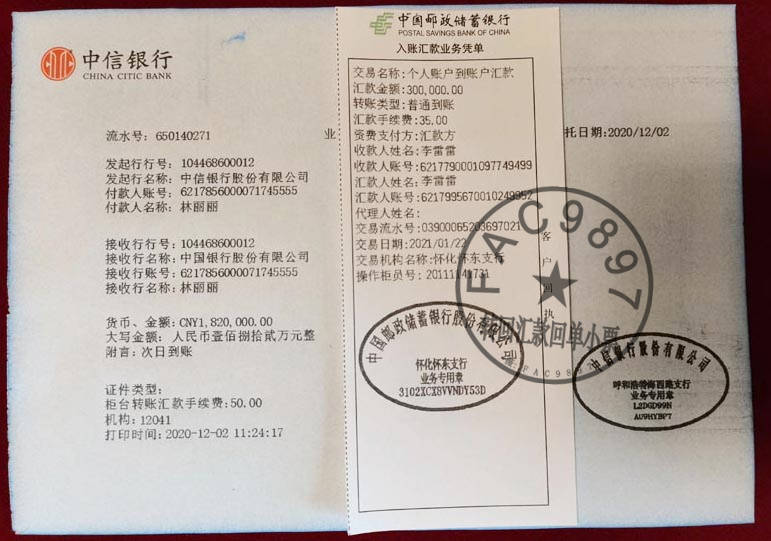 中信银行
CHINA CITIC BANK
流水号：650140271
业
托日期：2020/12/02
发起行行号：104468600012
发起行名称：中信银行股份有限公司
付款人账号：6217856000071745555
付款人名称：林丽丽
接收行行号：104468600012
接收行名称：中国银行股份有限公司
接收行账号：6217856000071745555
接收行名称：林丽丽
货币、金额：CNY1,820,000.00
大写金额： 人民币壹佰捌拾贰万元整
附言：次日到账
证件类型：
柜台转账汇款手续费：50.00
机构：12041
打印时间：2020-12-02 11:24:17
中国邮政储蓄银行
POSTAL SAVINGS BANK OF CHINA
入账汇款业务凭单
交易名称：个人账户到账户汇款
汇款金额：300,000.00
转账类型：普通到账
汇款手续费：35.00
资费支付方：汇款方
收款人姓名：李雷雷
收款人账号：6217790001097749499
汇款人姓名：李雷雷
汇款人账号：6217995670010249952
代理人姓名：
交易流水号：03900065203697021
交易日期：2021/01/22
交易机构名称：怀化怀东支行
操作柜员号：20111141731
客户回执
中国邮政储蓄银行股份有限公司
怀化怀东支行
业务专用章
3102XCX8VVNDY53D
FAC9897
转回汇款回单小票
中信银行股份有限公司
呼和浩特海西路支行
业务专用章
L2DGD99N
AU9HYBP7